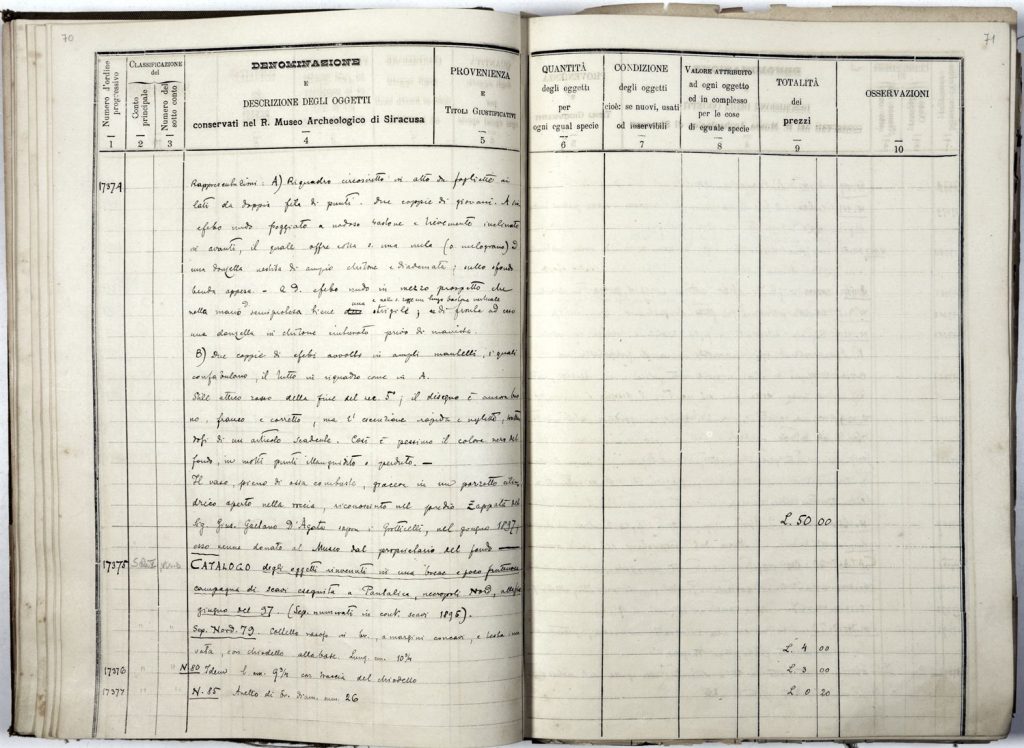 70
Numero d'ordine progressivo
1
CLASSIFICAZIONE del
Conto principale
2
Numero del sotto conto
3
DENOMINAZIONE
E
DESCRIZIONE DEGLI OGGETTI
conservati nel R. Museo Archeologico di Siracusa
4
PROVENIENZA
E
TITOLI GIUSTIFICATIVI
5
17374
Rappresentazioni: A) Riquadro circoscritto in alto da fogliette ai
lati da doppia fila di punti. Due coppie di giovani. A
efebo nudo poggiato a nodoso bastone e lievemente inclinato
in avanti, il quale offre colla s. una mela (o melograno) ad
una donzella vestita di ampio chitone e diademata; sullo sfondo
benda appesa. - A d. efebo nudo in mezzo prospetto che
nella mano d. semiprotesa tiene una strigile e nella s. regge un lungo bastone verticale; e di fronte ad esso
una donzella in chitone privo di maniche.
B) Due coppie di efebi avvolti in ampli mantelli, i quali
confabulano, il tutto in riquadro come in A.
Stile attico rosso della fine del sec. 5°; il disegno è ancora buo
no, franco e corretto, ma l'esecuzione rapida e
dosi di un articolo scadente. Così è pessimo il colore nero del
fondo, in molti punti illanguidito o perduto. —
Il vaso, pieno di ossa combuste, giaceva in un pozzetto cilin
drico aperto nella roccia, riconosciuto nel predio Zappalà del
Sig. Gius. Gaetano D'Agata sopra i Grotticelli, nel giugno 1897;
esso venne donato al Museo dal proprietario del fondo —
17375
CATALOGO degli oggetti rinvenuti in una breve e poco fruttuosa
campagna di scavi eseguita a Pantalica, necropoli Nord,
giugno del 97. (Sep. numerati in cont. scavi 1895).
Sep. Nord. 79. Coltello rasoio in br., a margini concavi, e testa
vata, con chiodello alla base. Lung. cm. 10¾
17376 " " N. 80 Idem l. cm. 9¾ con traccia del chiodello
17377 " " N. 85 Anello di br. diam. mm. 26
71
QUANTITÀ
degli oggetti
per
ogni egual specie
6
CONDIZIONE
degli oggetti
cioè: se nuovi, usati
od inservibili
7
VALORE ATTRIBUITO
ad ogni oggetto
ed in complesso
per le cose
di eguale specie
8
TOTALITÀ
dei
prezzi
9
OSSERVAZIONI
10
L. 50 00
L. 4 00
L. 3 00
L. 0 20